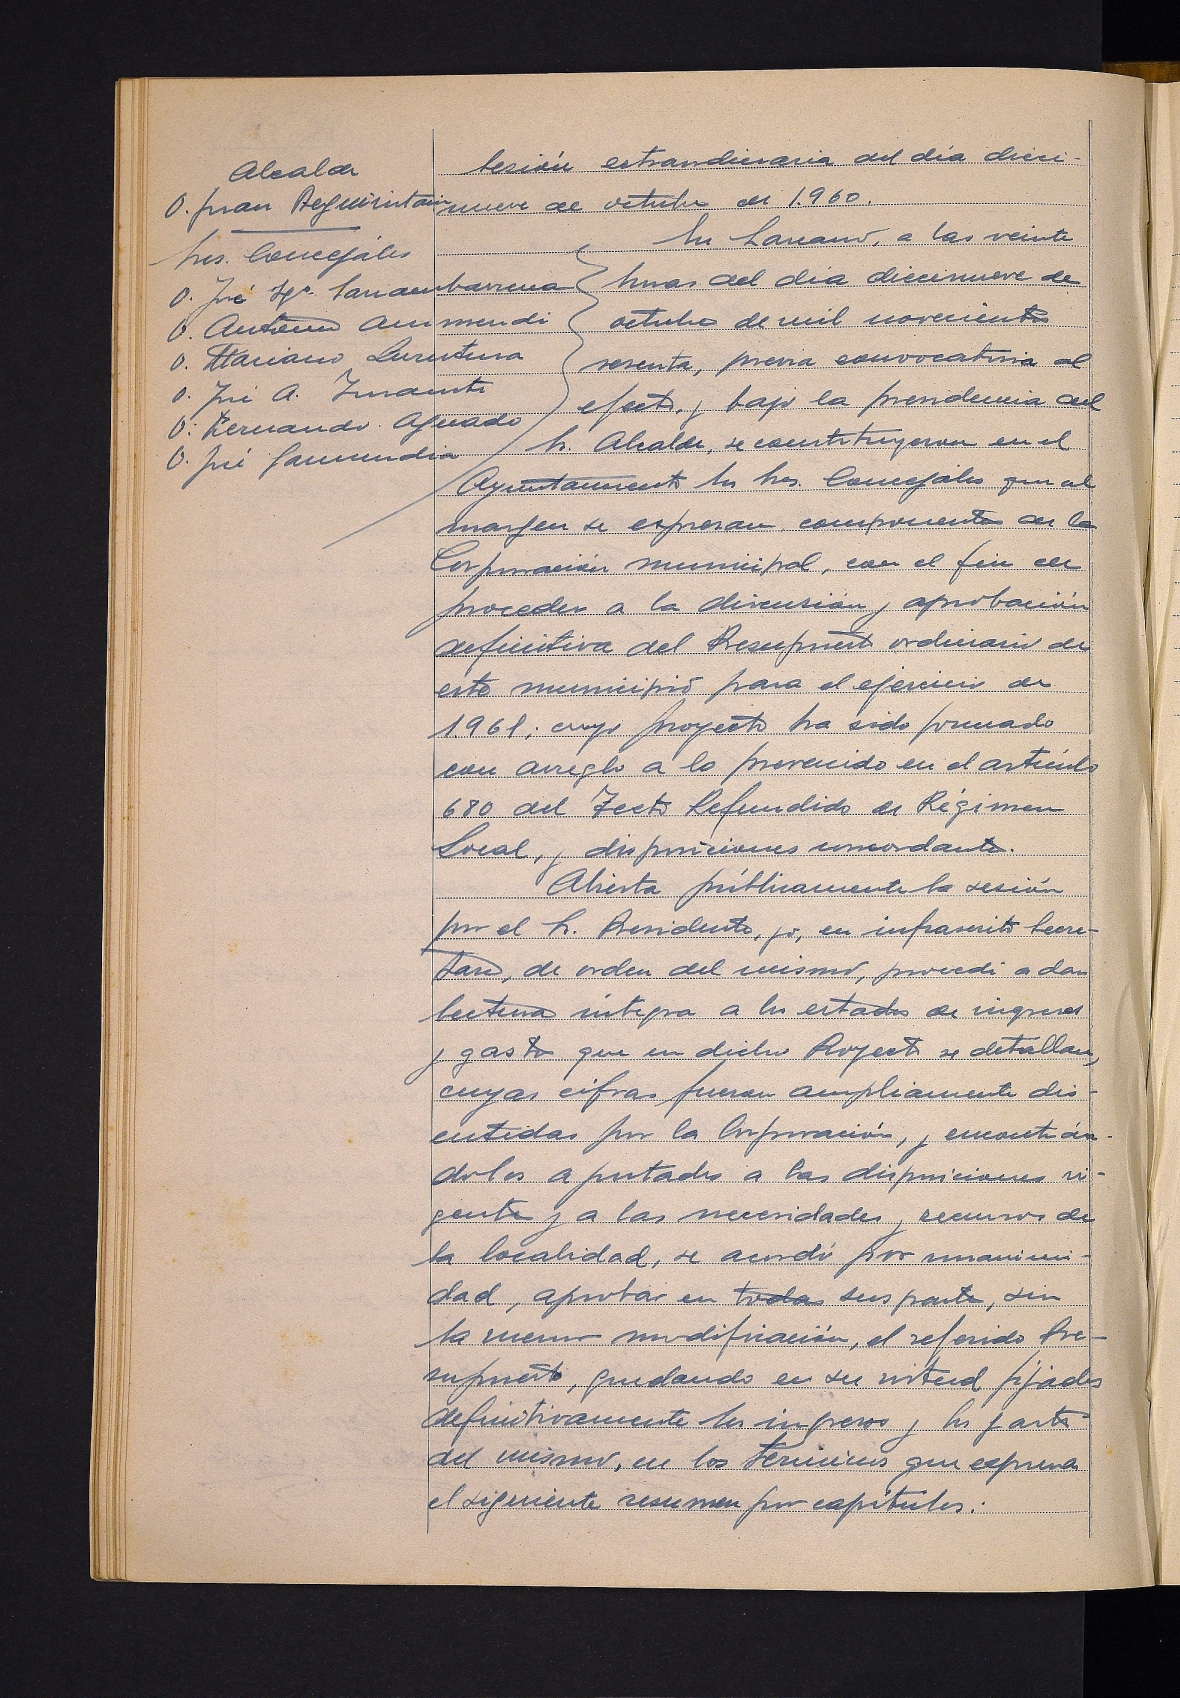 Alcalde
D. Juan Aeguinintain
Sres. Concejales
D. José Mª Larrambarrena
D. Antonio Aurmendi
D. Mariano Lurutena
D. José A.
D. Fernando Aguado
D. José Garmendia
Sesión extraordinaria del día dieci-
nueve de octubre de 1.960.
En Larraul, a las veinte
horas del día diecinueve de
octubre de mil novecientos
sesenta, previa convocatoria al
efecto, y bajo la presidencia del
Sr. Alcalde, se constituyeron en el
Ayuntamiento los Sres. Concejales que al
margen se expresan, componentes de la
Corporación municipal, con el fin de
proceder a la discusión y aprobación
definitiva del Presupuesto ordinario de
este municipio para el ejercicio de
1.961; cuyo proyecto ha sido formado
con arreglo a lo prevenido en el artículo
680 del Texto Refundido de Régimen
Local, y disposiciones concordantes.
Abierta públicamente la sesión
por el Sr. Presidente, yo, en infrascrito Secre-
tario, de orden del mismo, procedí a dar
lectura íntegra a los estados de ingresos
y gastos que en dicho Proyecto se detallan,
cuyas cifras fueron ampliamente dis-
cutidas por la Corporación, y encontrán-
dolos ajustados a las disposiciones vi-
gentes y a las necesidades y recursos de
la localidad, se acordó por unanimi-
dad, aprobar en todas sus partes, sin
la menor modificación, el referido Pre-
supuesto, quedando en su virtud fijados
definitivamente los ingresos y los gastos
del mismo, en los términos que expresa
el siguiente resumen por capítulos: